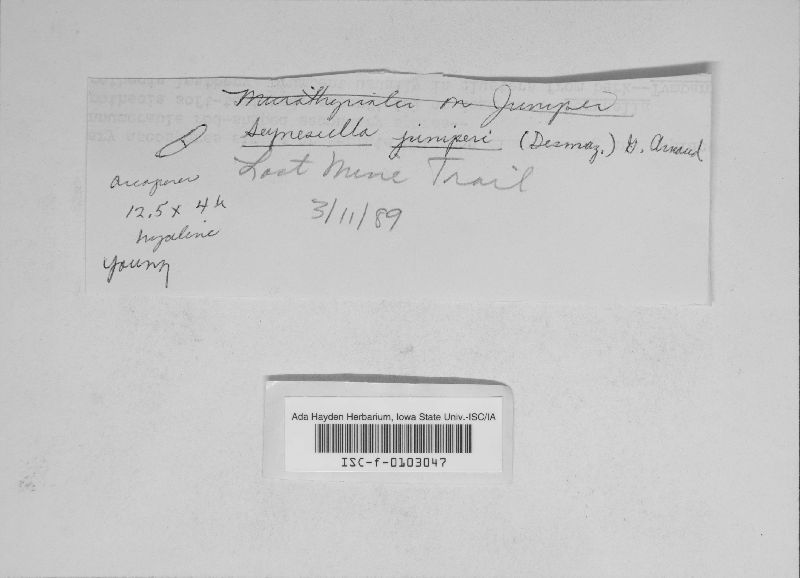 Microthyriales on Juniper
Seynesiella juniperi (Desmaz.) G. Arnaud
Lost Mine Trail
3/11/89
ascospores
12.5 x 4 µ
hyaline
young
Ada Hayden Herbarium, Iowa State Univ.-ISC/IA
ISC-f-0103047